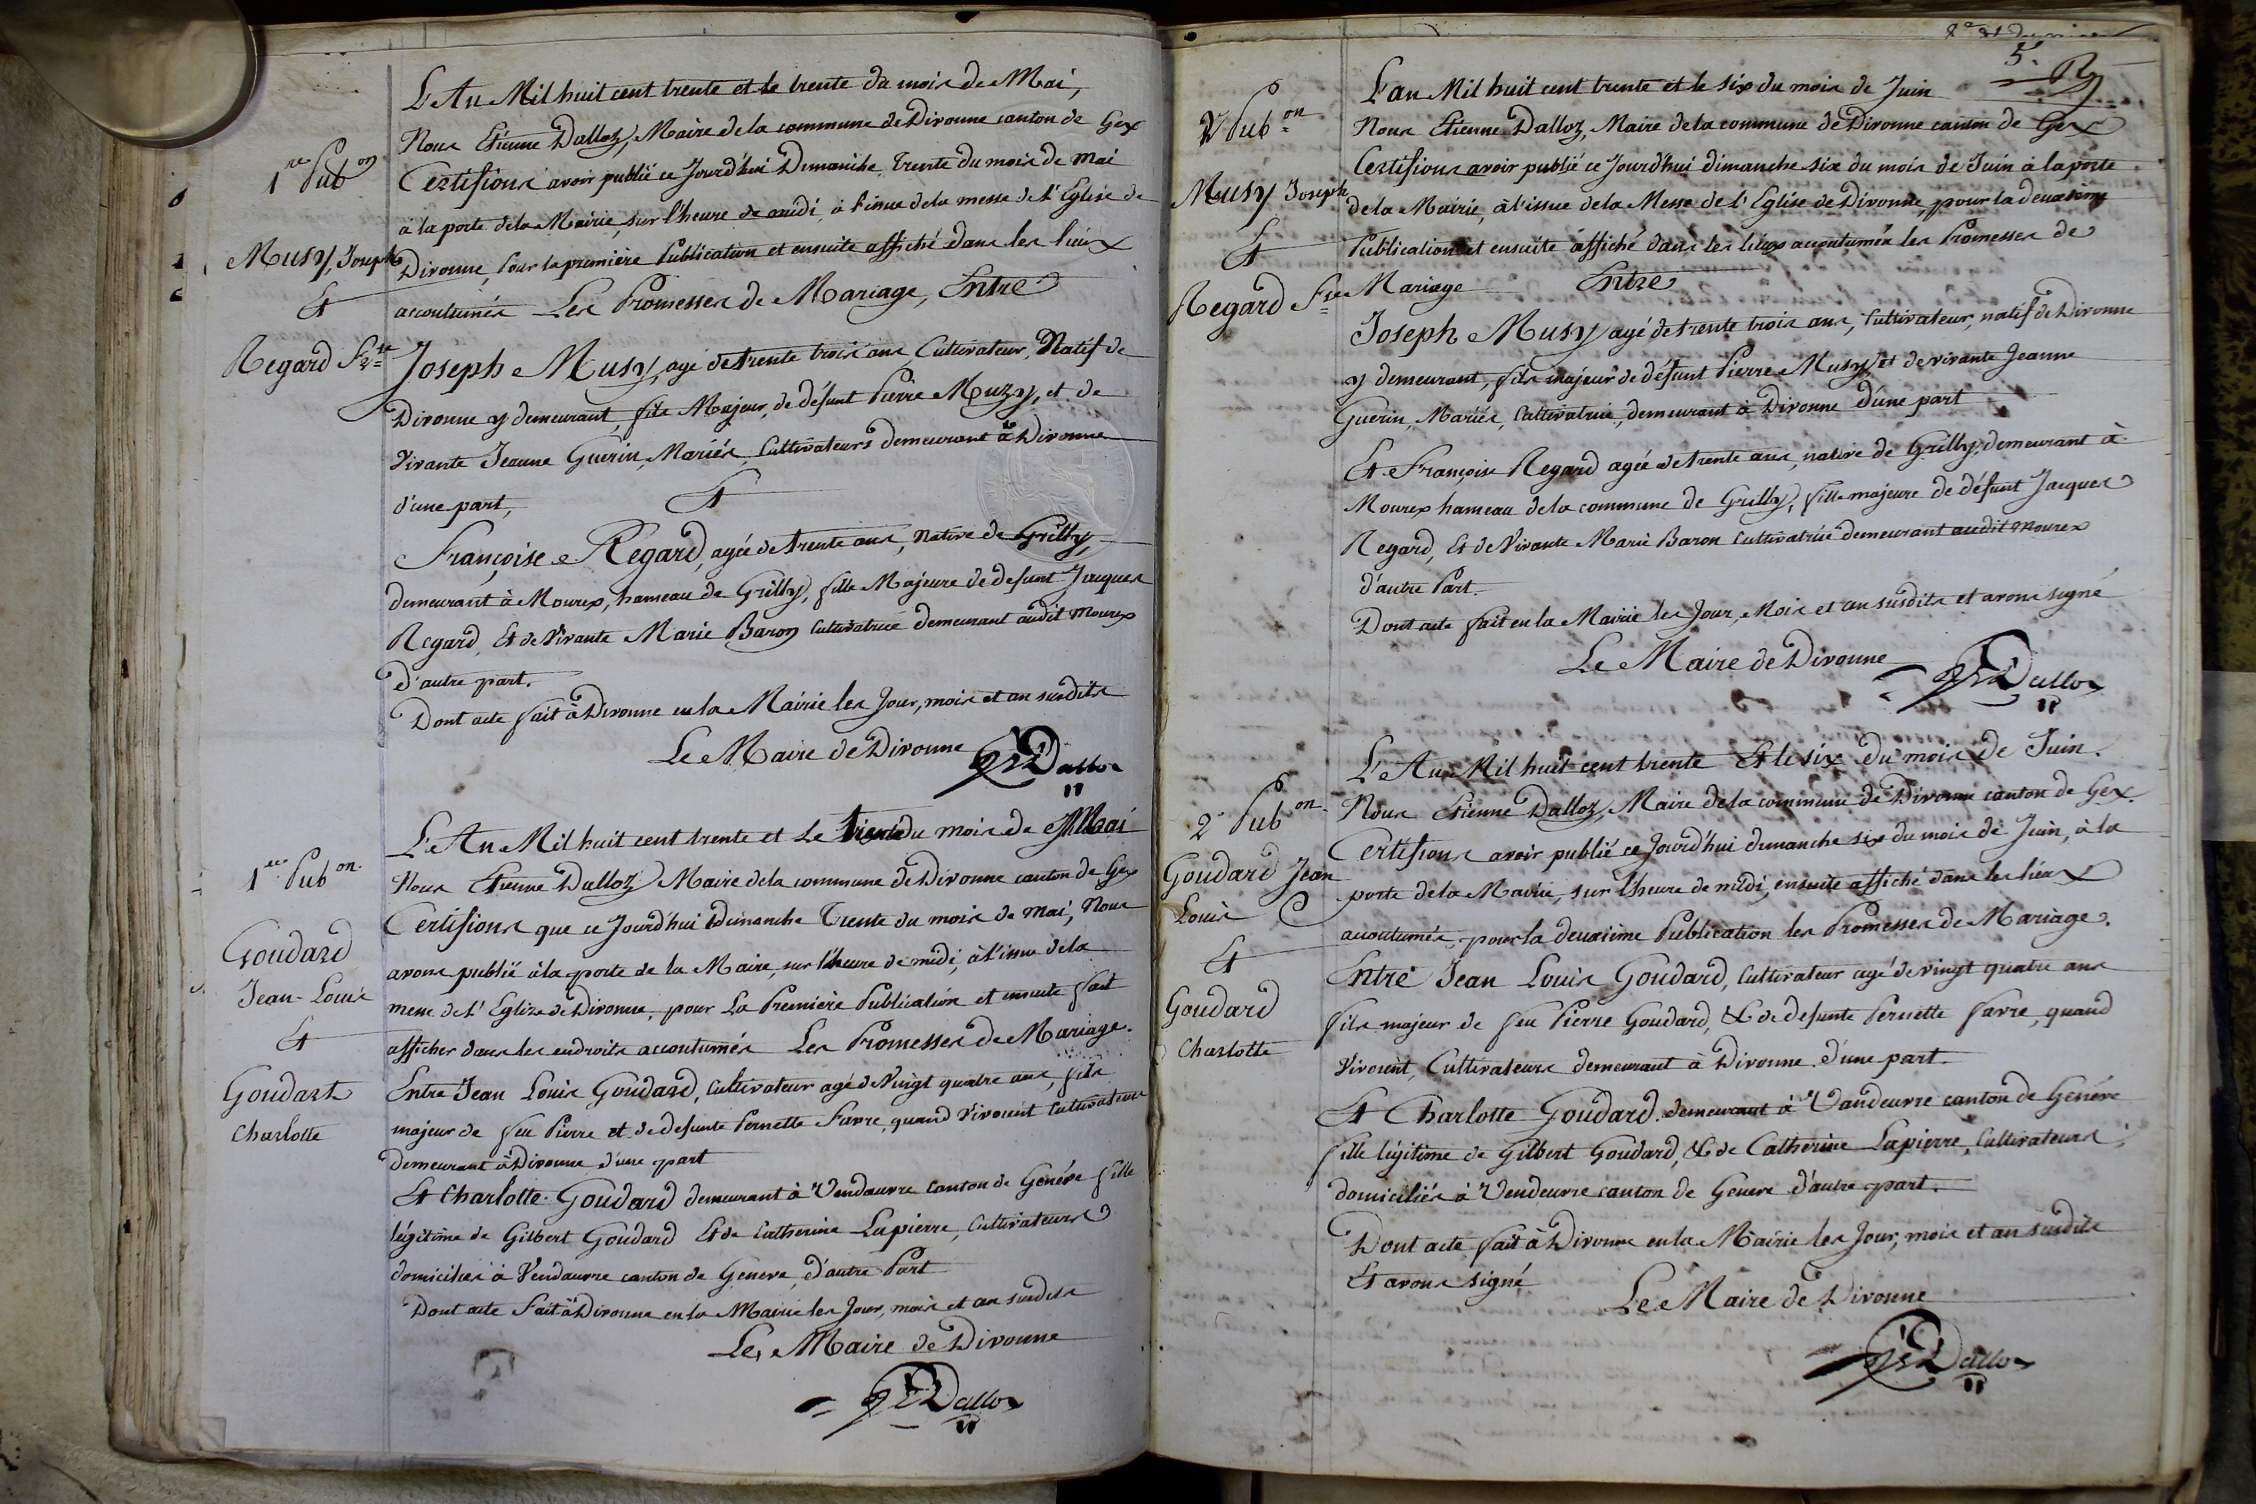 1re Pubon
Musy, Joseph
Et
Regard Fse
L'An Mil huit cent trente et le trente du mois de Mai,
Nous Etienne Dalloz, Maire de la commune de Divonne canton de Gex
Certifions avoir publié ce Jourd'hui Dimanche trente du mois de Mai
à la porte de la Mairie, sur l'heure de midi, à l'issue de la messe de l'Eglise de
Divonne, Pour la première Publication et ensuite affiché dans les lieux
accoutumés Les Promesses de Mariage, Entre
Joseph Musy, agé de trente trois ans Cultivateur, Natif de
Divonne y demeurant, fils Majeur, de défunt Pierre Muzy, et de
Vivante Jeanne Guerin, Mariés, Cultivateurs demeurant à Divonne
d'une part,
Et
Françoise Regard, agée de trente ans, Native de Grilly,
demeurant à Mourex, hameau de Grilly, fille Majeure de defunt Jacques
Regard, Et de Vivante Marie Baron Cultivatrice demeurant audit Mourex
d'autre part.
Dont acte fait à Divonne en la Mairie les Jour, mois et an susdits
Le Maire de Divonne
Dalloz
1ere Pubon
Goudard
Jean-Louis
Et
Goudart
Charlotte
L'An Mil huit cent trente et Le trente du mois de Mai
Nous Etienne Dalloz Maire de la commune de Divonne canton de Gex
Certifions que ce Jourd'hui Dimanche Trente du mois de Mai, Nous
avons publié à la porte de la Maire, sur l'heure de midi, à l'issue de la
messe de l'Eglize de Divonne, pour La Première Publication et ensuite fait
afficher dans les endroits accoutumés Les Promesses de Mariage.
Entre Jean Louis Goudard, Cultivateur agé de Vingt quatre ans, fils
majeur de feu Pierre et de defunte Pernette Favre, quand Vivoient Cultivateurs
demeurant à Divonne d'une part
Et Charlotte Goudard demeurant à Vendauvre Canton de Genéve fille
légitime de Gilbert Goudard Et de Catherine Lapierre, Cultivateurs
domiciliés à Vendauvre canton de Geneve, d'autre Part
Dont acte Fait à Divonne en la Mairie les Jour, mois et an susdits
Le Maire de Divonne
Dalloz
5.
2e Pubon
Musy Joseph
Et
Regard Fse
L'an Mil huit cent trente et le six du mois de Juin
Nous Etienne Dalloz, Maire de la commune de Divonne canton de Gex
Certifions avoir publié ce Jourd'hui dimanche six du mois de Juin à la porte
de la Mairie, à l'issue de la Messe de l'Eglise de Divonne, pour la deuxième
Publication et ensuite affiché dans les lieux accoutumés les Promesses de
Mariage Entre
Joseph Musy agé de trente trois ans, Cultivateur, natif de Divonne
y demeurant, fils majeur de défunt Pierre Musy, et de vivante Jeanne
Guerin, Mariés, Cultivatrice, demeurant à Divonne d'une part
Et Françoise Regard agée de trente ans, native de Grilly, demeurant à
Mourex hameau de la commune de Grilly, fille majeure de défunt Jacques
Regard, Et de Vivante Marie Baron Cultivatrice demeurant audit Mourex
d'autre Part.
Dont acte fait en la Mairie les Jour, Mois et an susdits et avons signé
Le Maire de Divonne
Dalloz
2e Pubon
Goudard Jean
Louis
Et
Goudard
Charlotte
L'An Mil huit cent trente Et le six du mois de Juin.
Nous Etienne Dalloz, Maire de la commune de Divonne canton de Gex.
Certifions avoir publié ce Jourd'hui dimanche six du mois de Juin, à la
porte de la Mairie, sur l'heure de midi, ensuite affiché dans les lieux
accoutumés, pour la deuxième Publication les Promesses de Mariage.
Entre Jean Louis Goudard, Cultivateur agé de vingt quatre ans
fils majeur de feu Pierre Goudard, & de defunte Pernette Favre, quand
Vivoient, Cultivateurs demeurant à Divonne d'une part.
Et Charlotte Goudard demeurant à Vandeuvre canton de Genéve
fille légitime de Gilbert Goudard, & de Catherine Lapierre, Cultivateurs,
domiciliés à Vendeuvre canton de Geneve d'autre part.
Dont acte fait à Divonne en la Mairie les Jour, mois et an susdits
Et avons signé
Le Maire de Divonne
Dalloz